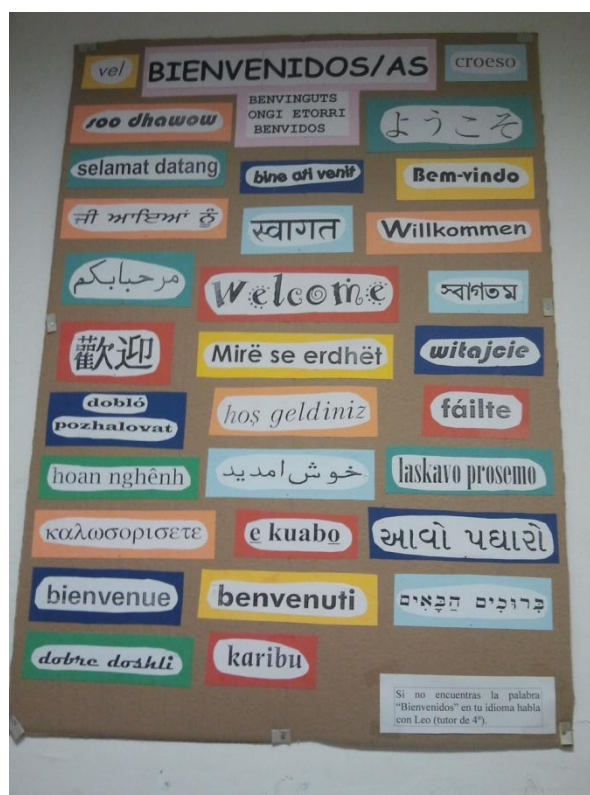 vel
BIENVENIDOS/AS
croeso
BENVINGUTS
ONGI ETORRI
BENVIDOS
soo dhawow
ようこそ
selamat datang
bine ati venit
Bem-vindo
ਜੀ ਆਇਆਂ ਨੂੰ
स्वागत
Willkommen
مرحبابكم
Welcome
স্বাগতম
歡迎
Mirë se erdhët
witajcie
dobló
pozhalovat
hoş geldiniz
fáilte
hoan nghênh
خوش امديد
laskavo prosemo
καλωσορισετε
e kuabo
આવો પધારો
bienvenue
benvenuti
בְּרוּכִים הַבָּאִים
dobre doshli
karibu
Si no encuentras la palabra
“Bienvenidos” en tu idioma habla
con Leo (tutor de 4º).